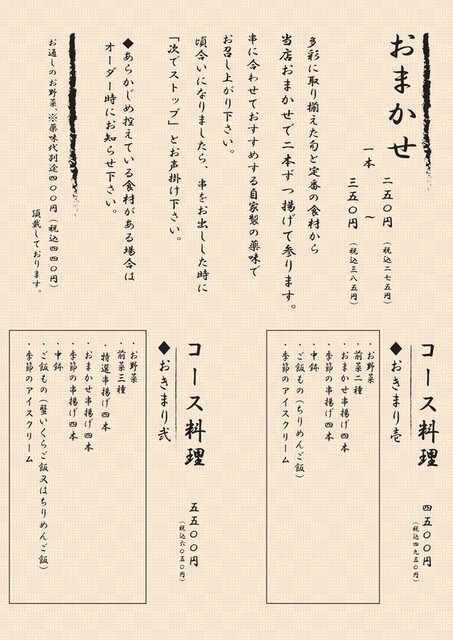 おまかせ
一本
二五〇円（税込二七五円）
〜
三五〇円（税込三八五円）
多彩に取り揃えた旬と定番の食材から
当店おまかせで二本ずつ揚げて参ります。
串に合わせておすすめする自家製の薬味で
お召し上がり下さい。
頃合いになりましたら、串をお出しした時に
「次でストップ」とお声掛け下さい。
◆あらかじめ控えている食材がある場合は
オーダー時にお知らせ下さい。
お通しのお野菜、※薬味代別途四〇〇円（税込四四〇円）
頂戴しております。
コース料理
◆おきまり壱
四五〇〇円
（税込四九五〇円）
・お野菜
・前菜二種
・おまかせ串揚げ四本
・季節の串揚げ四本
・中鉢
・ご飯もの（ちりめんご飯）
・季節のアイスクリーム
コース料理
◆おきまり弐
五五〇〇円
（税込六〇五〇円）
・お野菜
・前菜三種
・特選串揚げ四本
・おまかせ串揚げ四本
・季節の串揚げ四本
・中鉢
・ご飯もの（蟹いくらご飯又はちりめんご飯）
・季節のアイスクリーム